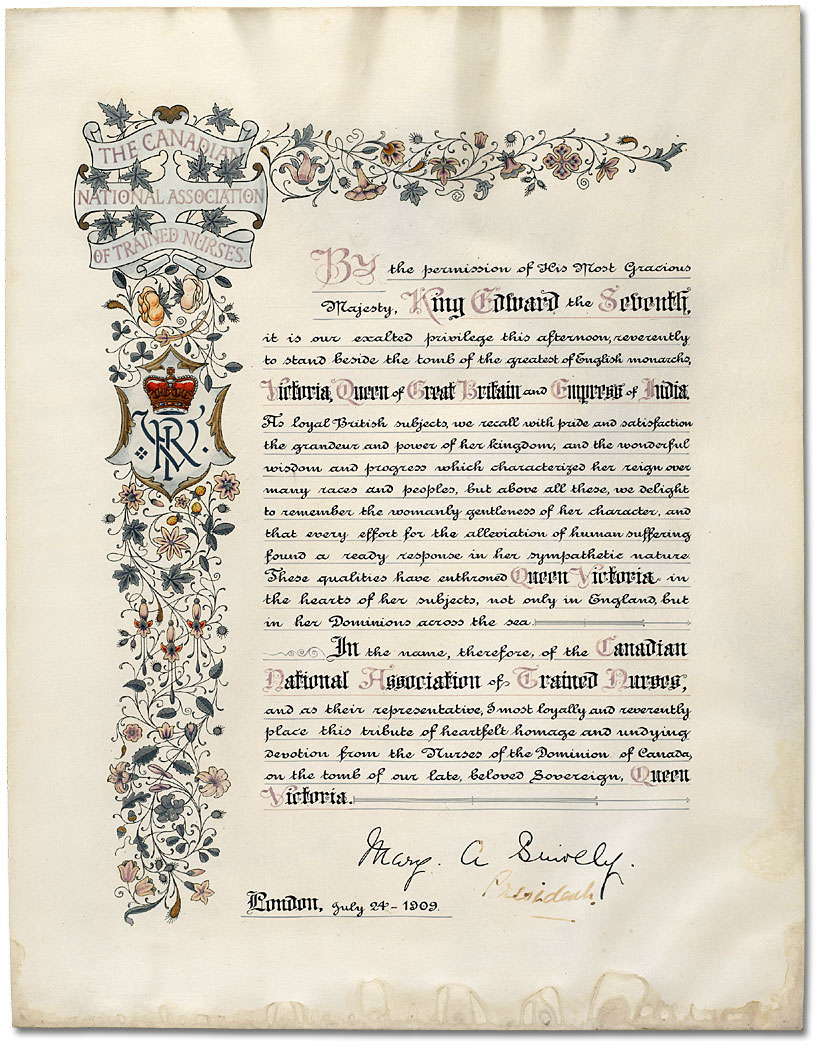 THE CANADIAN
NATIONAL ASSOCIATION
OF TRAINED NURSES.
By the permission of His Most Gracious
Majesty, King Edward the Seventh,
it is our exalted privilege this afternoon, reverently
to stand beside the tomb of the greatest of English monarchs,
Victoria, Queen of Great Britain and Empress of India.
As loyal British subjects, we recall with pride and satisfaction
the grandeur and power of her kingdom, and the wonderful
wisdom and progress which characterized her reign over
many races and peoples, but above all these, we delight
to remember the womanly gentleness of her character, and
that every effort for the alleviation of human suffering
found a ready response in her sympathetic nature.
These qualities have enthroned Queen Victoria in
the hearts of her subjects, not only in England, but
in her Dominions across the sea.
In the name, therefore, of the Canadian
National Association of Trained Nurses,
and as their representative, I most loyally and reverently
place this tribute of heartfelt homage and undying
devotion from the Nurses of the Dominion of Canada,
on the tomb of our late, beloved Sovereign, Queen
Victoria.
Mary. A Snively.
President.
London, July 24 - 1909.
VRI